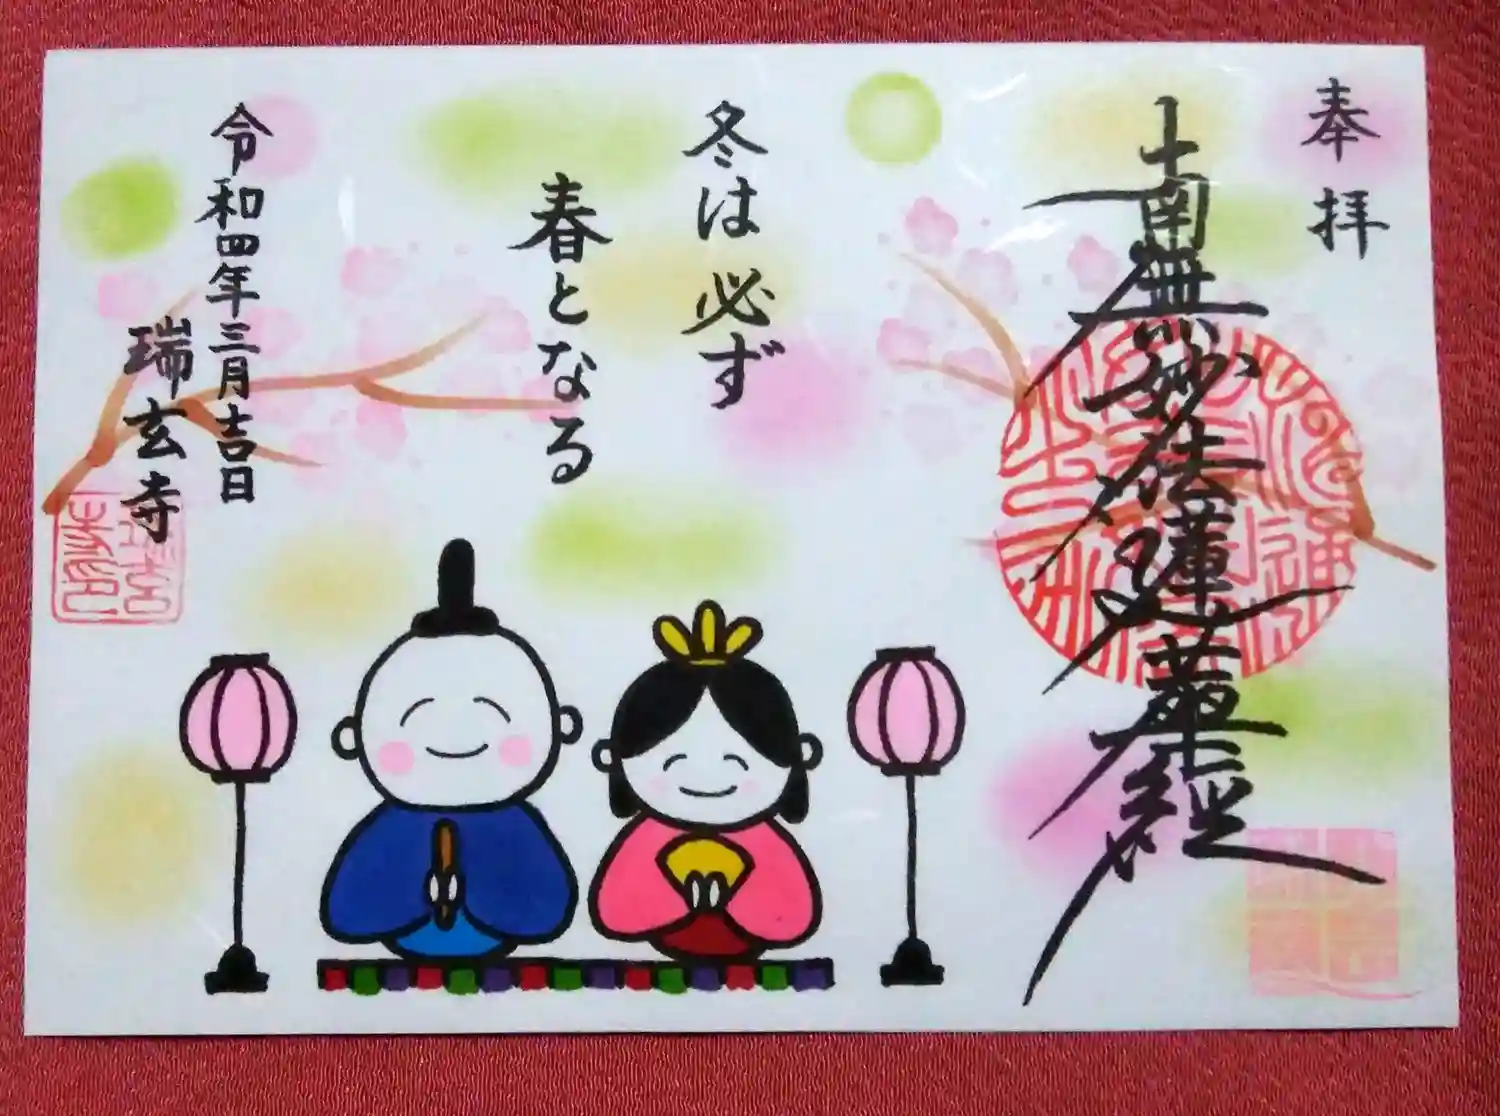 奉拝
南無妙法蓮華経
冬は必ず
春となる
令和四年三月吉日
瑞玄寺